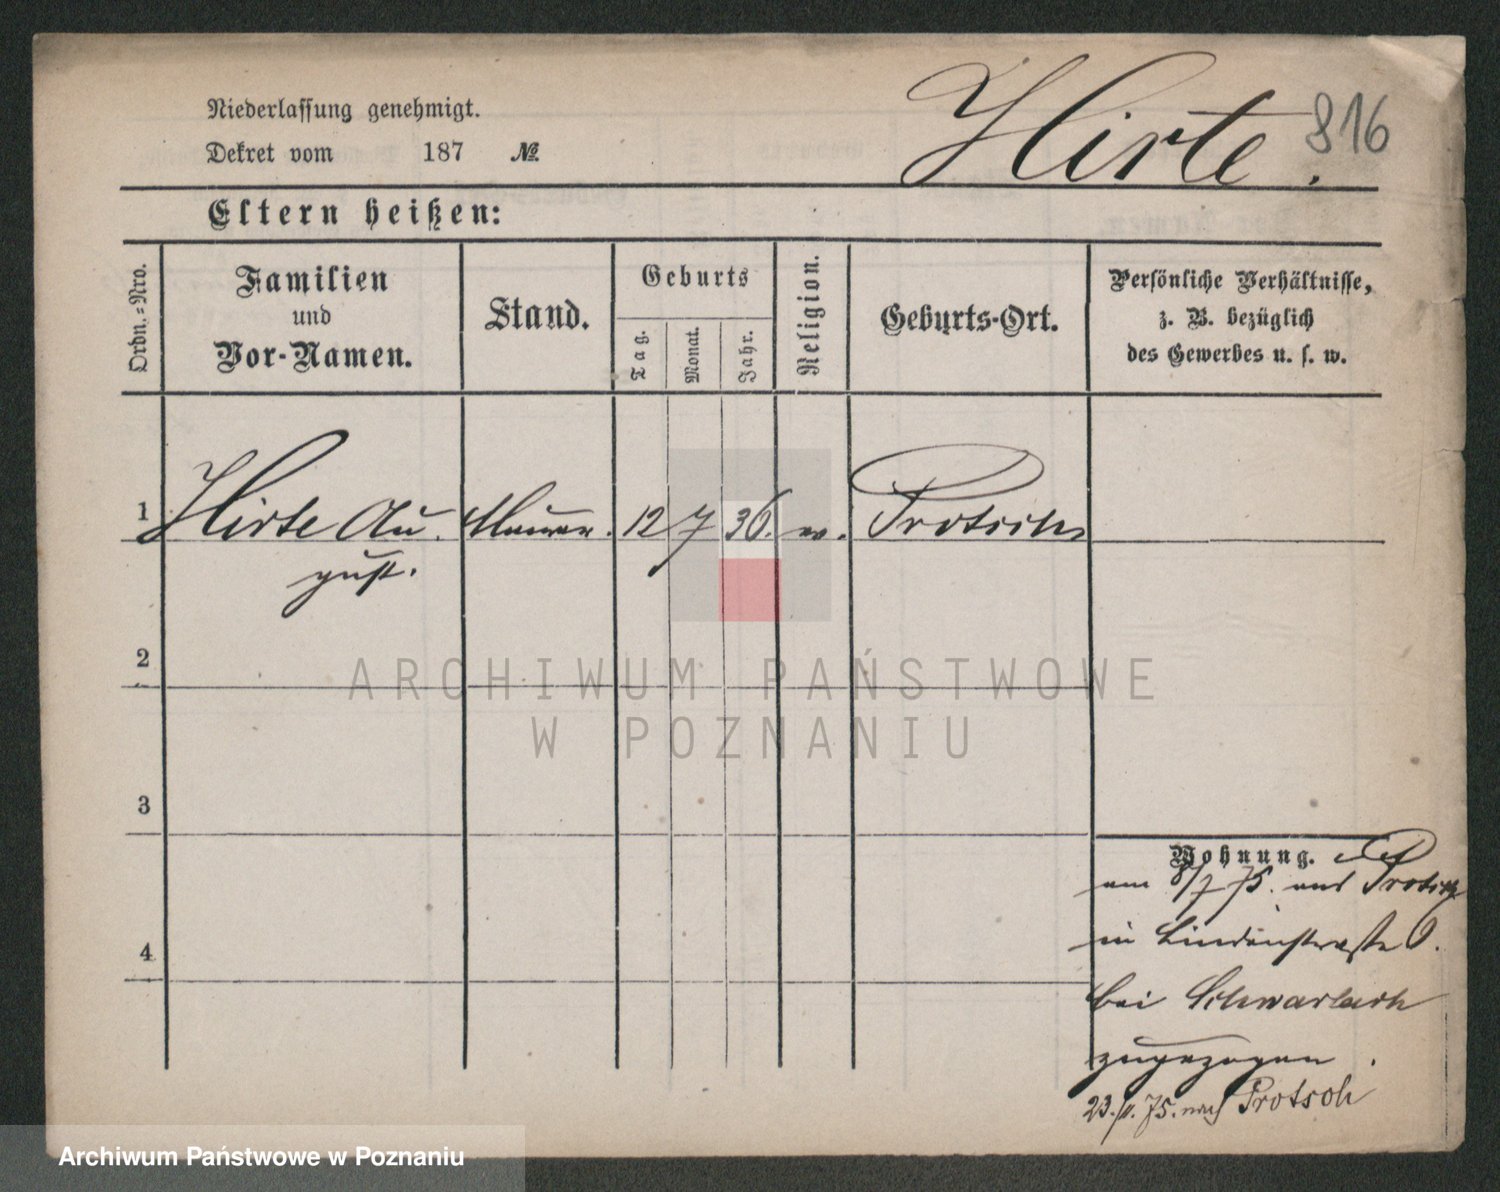 Niederlassung genehmigt.
Dekret vom 187 №
Hirte.
816
Eltern heißen:
Ordn.-Nro.
Familien
und
Vor-Namen.
Stand.
Geburts
Tag.
Monat.
Jahr.
Religion.
Geburts-Ort.
Persönliche Verhältnisse,
z. B. bezüglich
des Gewerbes u. s. w.
1 Hirte Au Maurer. 12 7 36. ev. Protsch
gust.
2
ARCHIWUM PAŃSTWOWE
W POZNANIU
3
4
Wohnung.
am 8/7 75. aus Protsch
in Lindenstraße
bei
zugezogen.
23. 75. nach Protsch
Archiwum Państwowe w Poznaniu